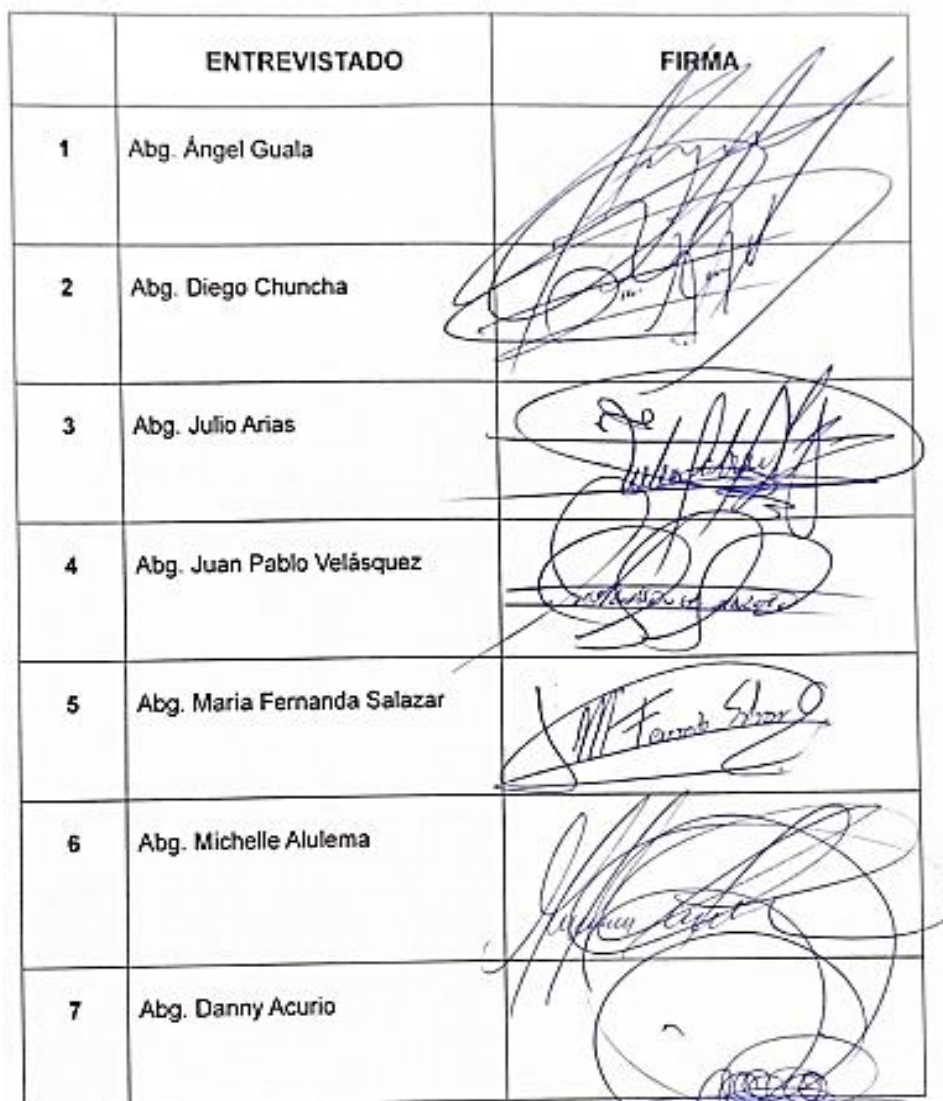 ENTREVISTADO FIRMA
1 Abg. Ángel Guala
2 Abg. Diego Chuncha
3 Abg. Julio Arias
4 Abg. Juan Pablo Velásquez
5 Abg. Maria Fernanda Salazar
6 Abg. Michelle Alulema
7 Abg. Danny Acurio